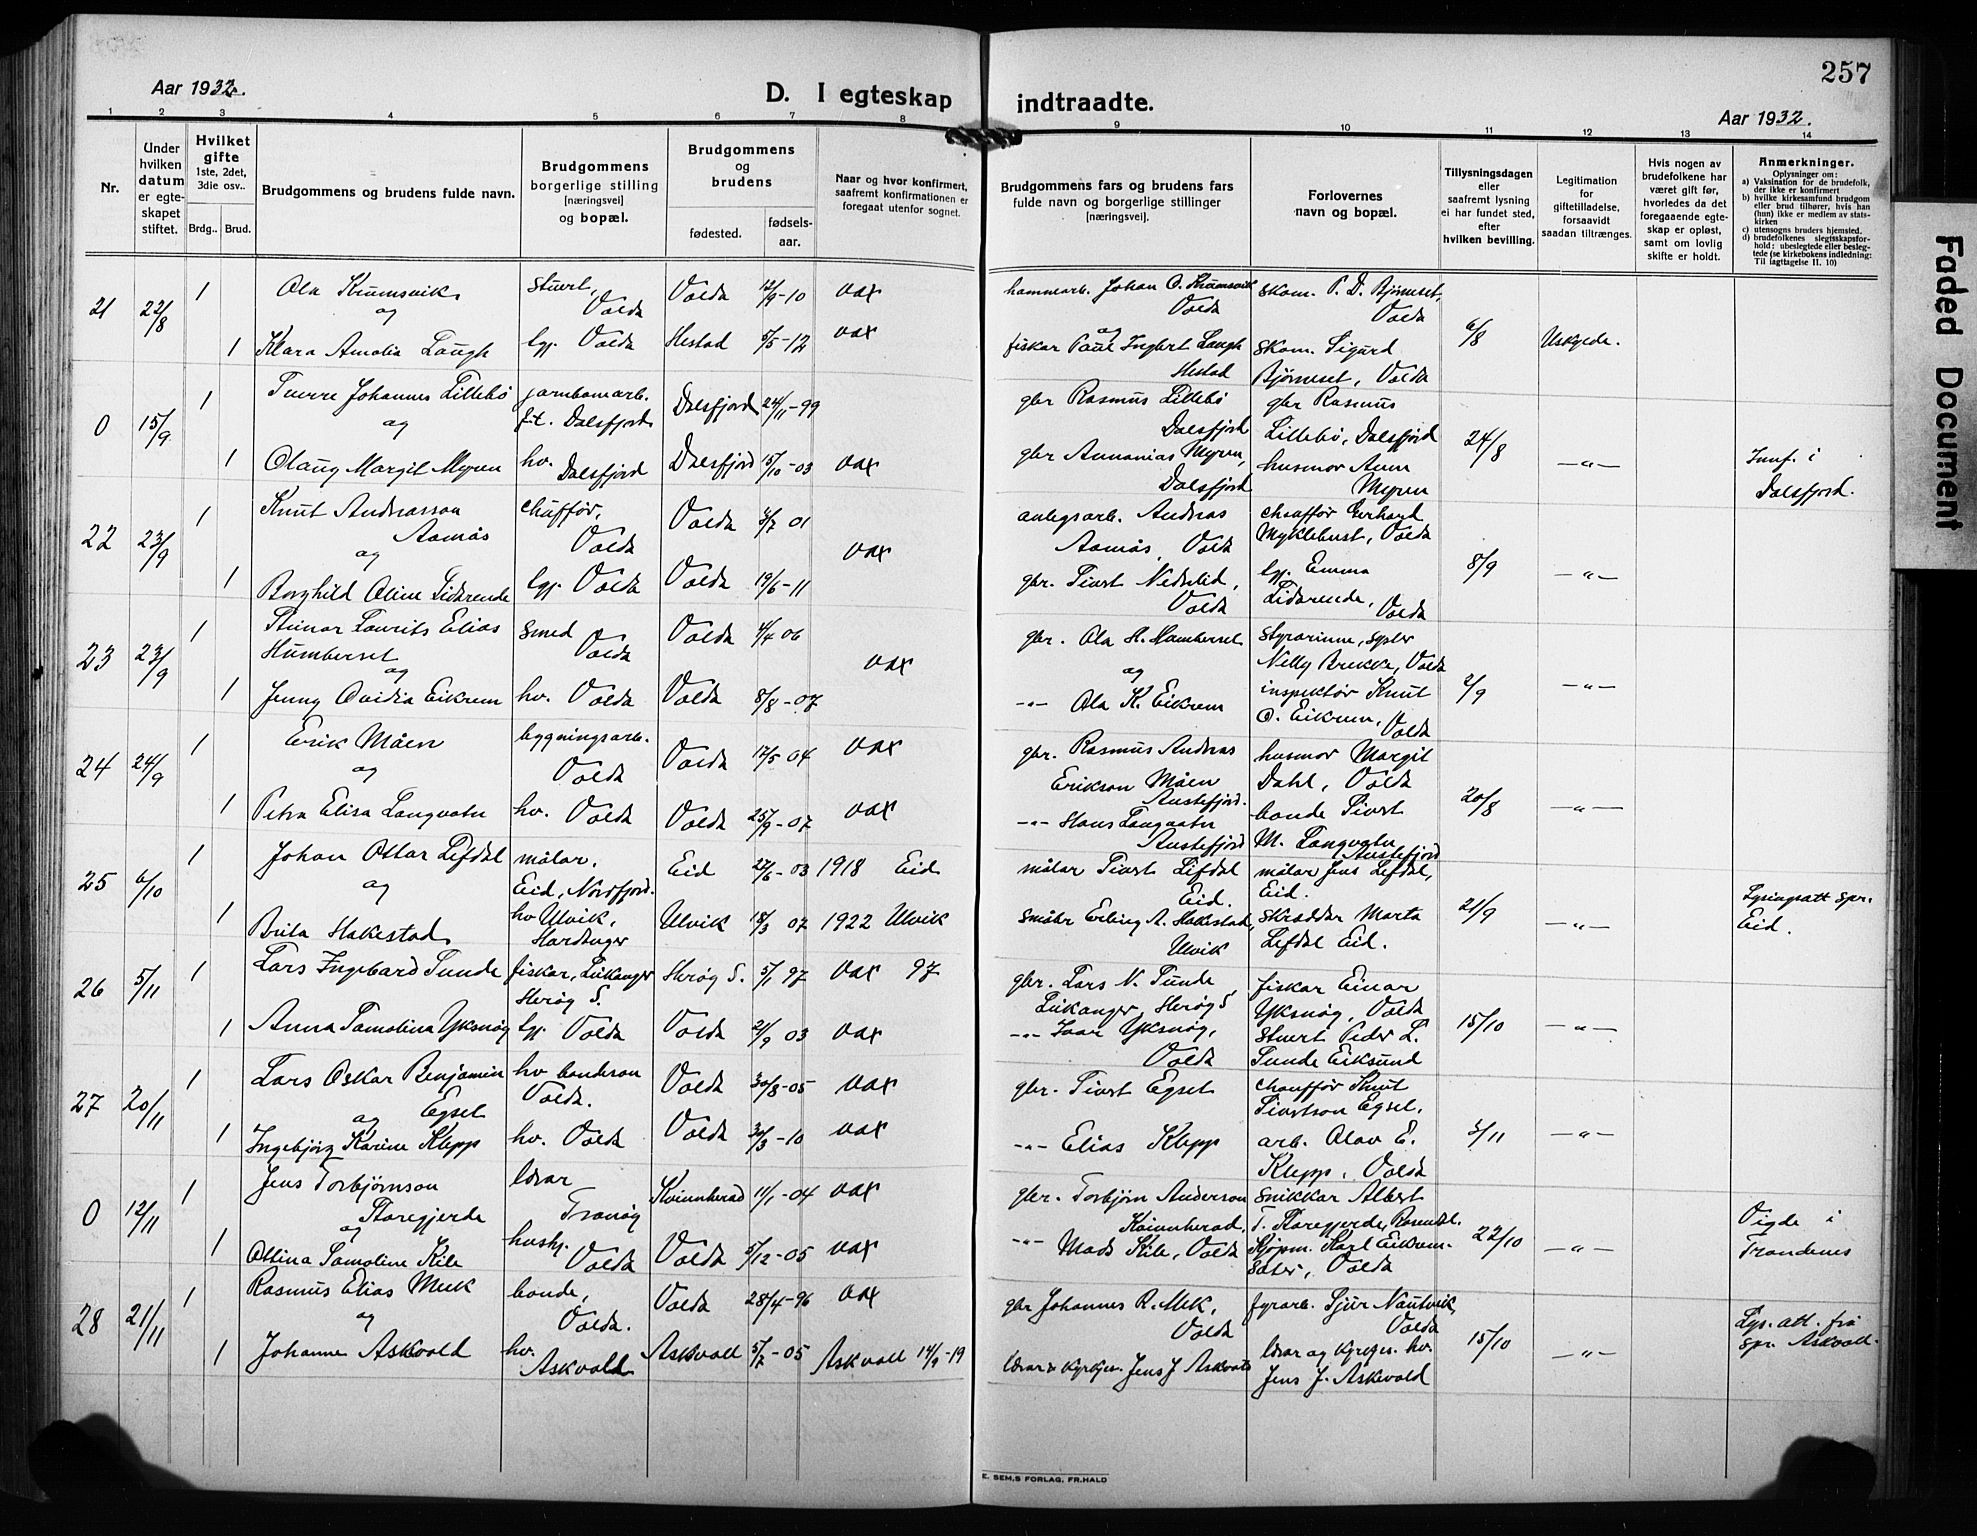 257
Aar 1932.
D. I egteskap indtraadte.
Aar 1932.
1 2 3 4 5 6 7 8 9 10 11 12 13 14
Nr.
Under hvilken datum er egteskapet stiftet.
Hvilket gifte
1ste, 2det, 3die osv..
Brdg.. Brud.
Brudgommens og brudens fulde navn.
Brudgommens borgerlige stilling [næringsvei] og bopæl.
Brudgommens og brudens
fødested. fødsels-aar.
Naar og hvor konfirmert, saafremt konfirmationen er foregaat utenfor sognet.
Brudgommens fars og brudens fars fulde navn og borgerlige stillinger [næringsvei].
Forlovernes navn og bopæl.
Tillysningsdagen eller saafremt lysning ei har fundet sted, efter hvilken bevilling.
Legitimation for giftetilladelse, forsaavidt saadan tiltrænges.
Hvis nogen av brudefolkene har været gift før, hvorledes da det foregaaende egteskap er opløst, samt om lovlig skifte er holdt.
Anmerkninger.
Oplysninger om:
a) Vaksination for de brudefolk, der ikke er konfirmert
b) hvilke kirkesamfund brudgom eller brud tilhører, hvis han (hun) ikke er medlem av statskirken
c) utensogns bruders hjemsted.
d) brudefolkenes slegtsskapsforhold: ubeslegtede eller beslegtede (se kirkebokens indledning: Til iagttagelse II. 10)
21 22/8 1 Ola Krumsvik stuert, Volda Volda 12/9-10 vax
og
1 Klara Amalia Laugh lgj. Volda Hestad 5/5-12 vax
hammarb. Johan O. Krumsvik Volda skom. P. D. Bjørneset, Volda
og
fiskar Paul Ingbert Laugh Hestad skom. Sigurd Bjørneset, Volda 6/8 Uskylde.
0 15/9 1 Sverre Johannes Lillebø jarnbanearb. f.t. Dalsfjord Dalsfjord 24/11-99
og
1 Olaug Margit Myren hv. Dalsfjord Dalsfjord 15/10-03 vax
gbr Rasmus Lillebø Dalsfjord gbr Rasmus Lillebø, Dalsfjord
gbr Annanias Myren, Dalsfjord husmor Anna Myren 24/8 —"— Innf. i Dalsfjord.
22 23/9 1 Knut Andreasson Aamås chaffør, Volda Volda 3/7 01
og
vax
1 Borghild Oline Lidarende lgj. Volda Volda 19/6-11
anlegsarb. Andreas Aamås, Volda chauffør Gerhard Myklebust, Volda
gbr. Sivert Nedrelid, Volda lgj. Emma Lidarende, Volda 8/9 —"—
23 23/9 1 Steinar Laurits Elias Humberset smed Volda Volda 4/4 06
og
vax
1 Jenny Ovidia Eikrem hv. Volda Volda 8/8-07
gbr. Ola H. Humberset styrarinne, spler Nelly Brekke, Volda
og
-"- Ola K. Eikrem inspektør Knut O. Eikrem, Volda 2/9 —"—
24 24/9 1 Erik Måen bygningsarb. Volda Volda 17/5 04 vax
og
1 Petra Elisa Langvatn hv. Volda Volda 25/9-07 vax
gbr. Rasmus Andreas Erikson Måen Austefjord. husmor Margit Dahl, Volda
-"- Hans Langvatn Austefjord bonde Sivert M. Langvatn Austefjord 20/8 —"—
25 6/10 1 Johan Ottar Lefdal målar, Eid, Nordfjord. Eid 27/6-03 1918 Eid
og
1 Brita Hakestad hv Ulvik, Hardanger Ulvik 18/3 07 1922 Ulvik
målar Sivert Lefdal Eid. målar Jens Lefdal, Eid.
småbr Erling A. Hakestad, Ulvik skræddar Marta Lefdal Eid. 21/9 —"— Lysingsatt spr. Eid.
26 5/11 1 Lars Ingebard Tunde fiskar, Leikanger Herøy S. Herøy S. 5/1 97 vax 97
1 Anna Tomolina Yksnøy lgj. Volda Volda 21/9 03 vax
gbr. Lars N. Tunde, Leikanger, Herøy S fiskar Einar Yksnøy, Volda
-"- Ivar Yksnøy, Volda stuert Peder L. Tunde Eiksund 15/10 —"—
27 20/11 1 Lars Oskar Benjamin Egset hv bondeson Volda. Volda 30/8-05 vax
og
1 Ingebjørg Karine Klepp hv. Volda Volda 30/3-10 vax
gbr. Sivert Egset chauffør Knut Sivertson Egset.
-"- Elias Klepp arb. Olav E. Klepp, Volda 3/11 —"—
0 12/11 1 Jens Torbjørnson Staregjerde lærar Tranøy Kvinnherad 11/1-04 vax
og
1 Ottina Tomoline Kile hushj. Volda Volda 5/12-05 vax
gbr. Torbjørn Anderson Kvinnherad, snikkar Albert T. Staregjerde, Rosendal.
-"- Mads Kile, Volda kjøpm. Karl Eikremsæter, Volda 22/10 —"— Vigde i Trondenes
28 21/11 1 Rasmus Elias Mek bonde, Volda. Volda 28/4-96 vax
og
1 Johanne Askvold hv. Askvold Askvoll 5/7-05 Askvoll 14/9-19
gbr Johannes R. Mek, Volda fyrarb. Sjur Nautvik, Volda
lærar & kyrkjes. Jens J Askvold lærar og kyrkjes. hv. Jens J. Askevold 15/10 —"— Lys. att. frå spr. Askvoll.
E. SEM,S FORLAG, FR.HALD
Faded Document